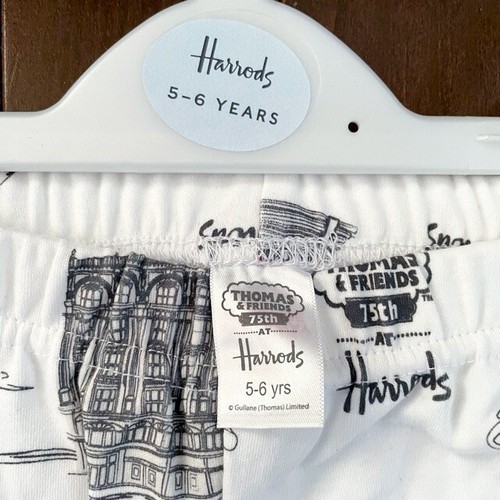 Harrods
5-6 YEARS
THOMAS
& FRIENDS
75th
AT
Harrods
5-6 yrs
© Gullane (Thomas) Limited
THOMAS
& FRIENDS
TM
75th
AT
Harrods